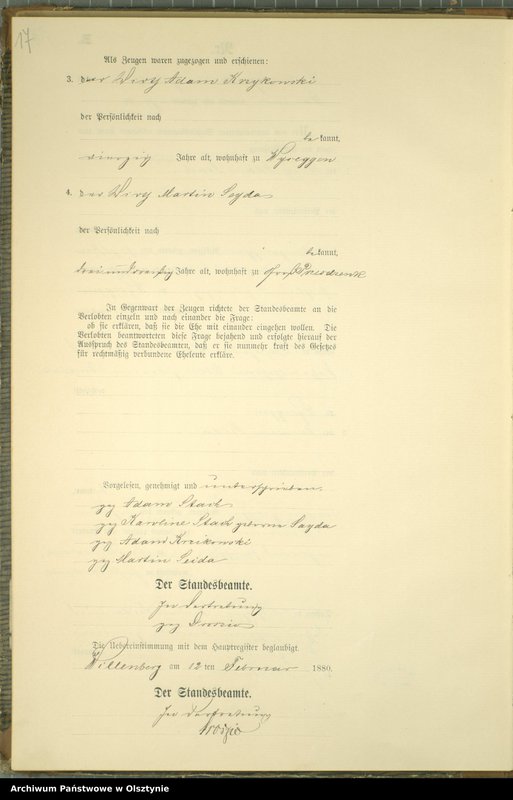 17
Als Zeugen waren zugezogen und erschienen:
3. der Wirth Adam Krzykowski
der Persönlichkeit nach
be kannt,
vierzig Jahre alt, wohnhaft zu Wyseggen
4. der Wirth Martin Seyda
der Persönlichkeit nach
be kannt,
dreiunddreißig Jahre alt, wohnhaft zu Groß Przesdzenk
In Gegenwart der Zeugen richtete der Standesbeamte an die
Verlobten einzeln und nach einander die Frage:
ob sie erklären, daß sie die Ehe mit einander eingehen wollen. Die
Verlobten beantworteten diese Frage bejahend und erfolgte hierauf der
Ausspruch des Standesbeamten, daß er sie nunmehr kraft des Gesetzes
für rechtmäßig verbundene Eheleute erkläre.
Vorgelesen, genehmigt und unterschrieben.
gez Adam Stach
gez Karoline Stach geborne Sayda
gez Adam Krzikowski
gez Martin Seida
Der Standesbeamte.
In Vertretung
gez
Die Uebereinstimmung mit dem Hauptregister beglaubigt.
Willenberg am 12 ten Februar 1880.
Der Standesbeamte.
In Vertretung
Archiwum Państwowe w Olsztynie